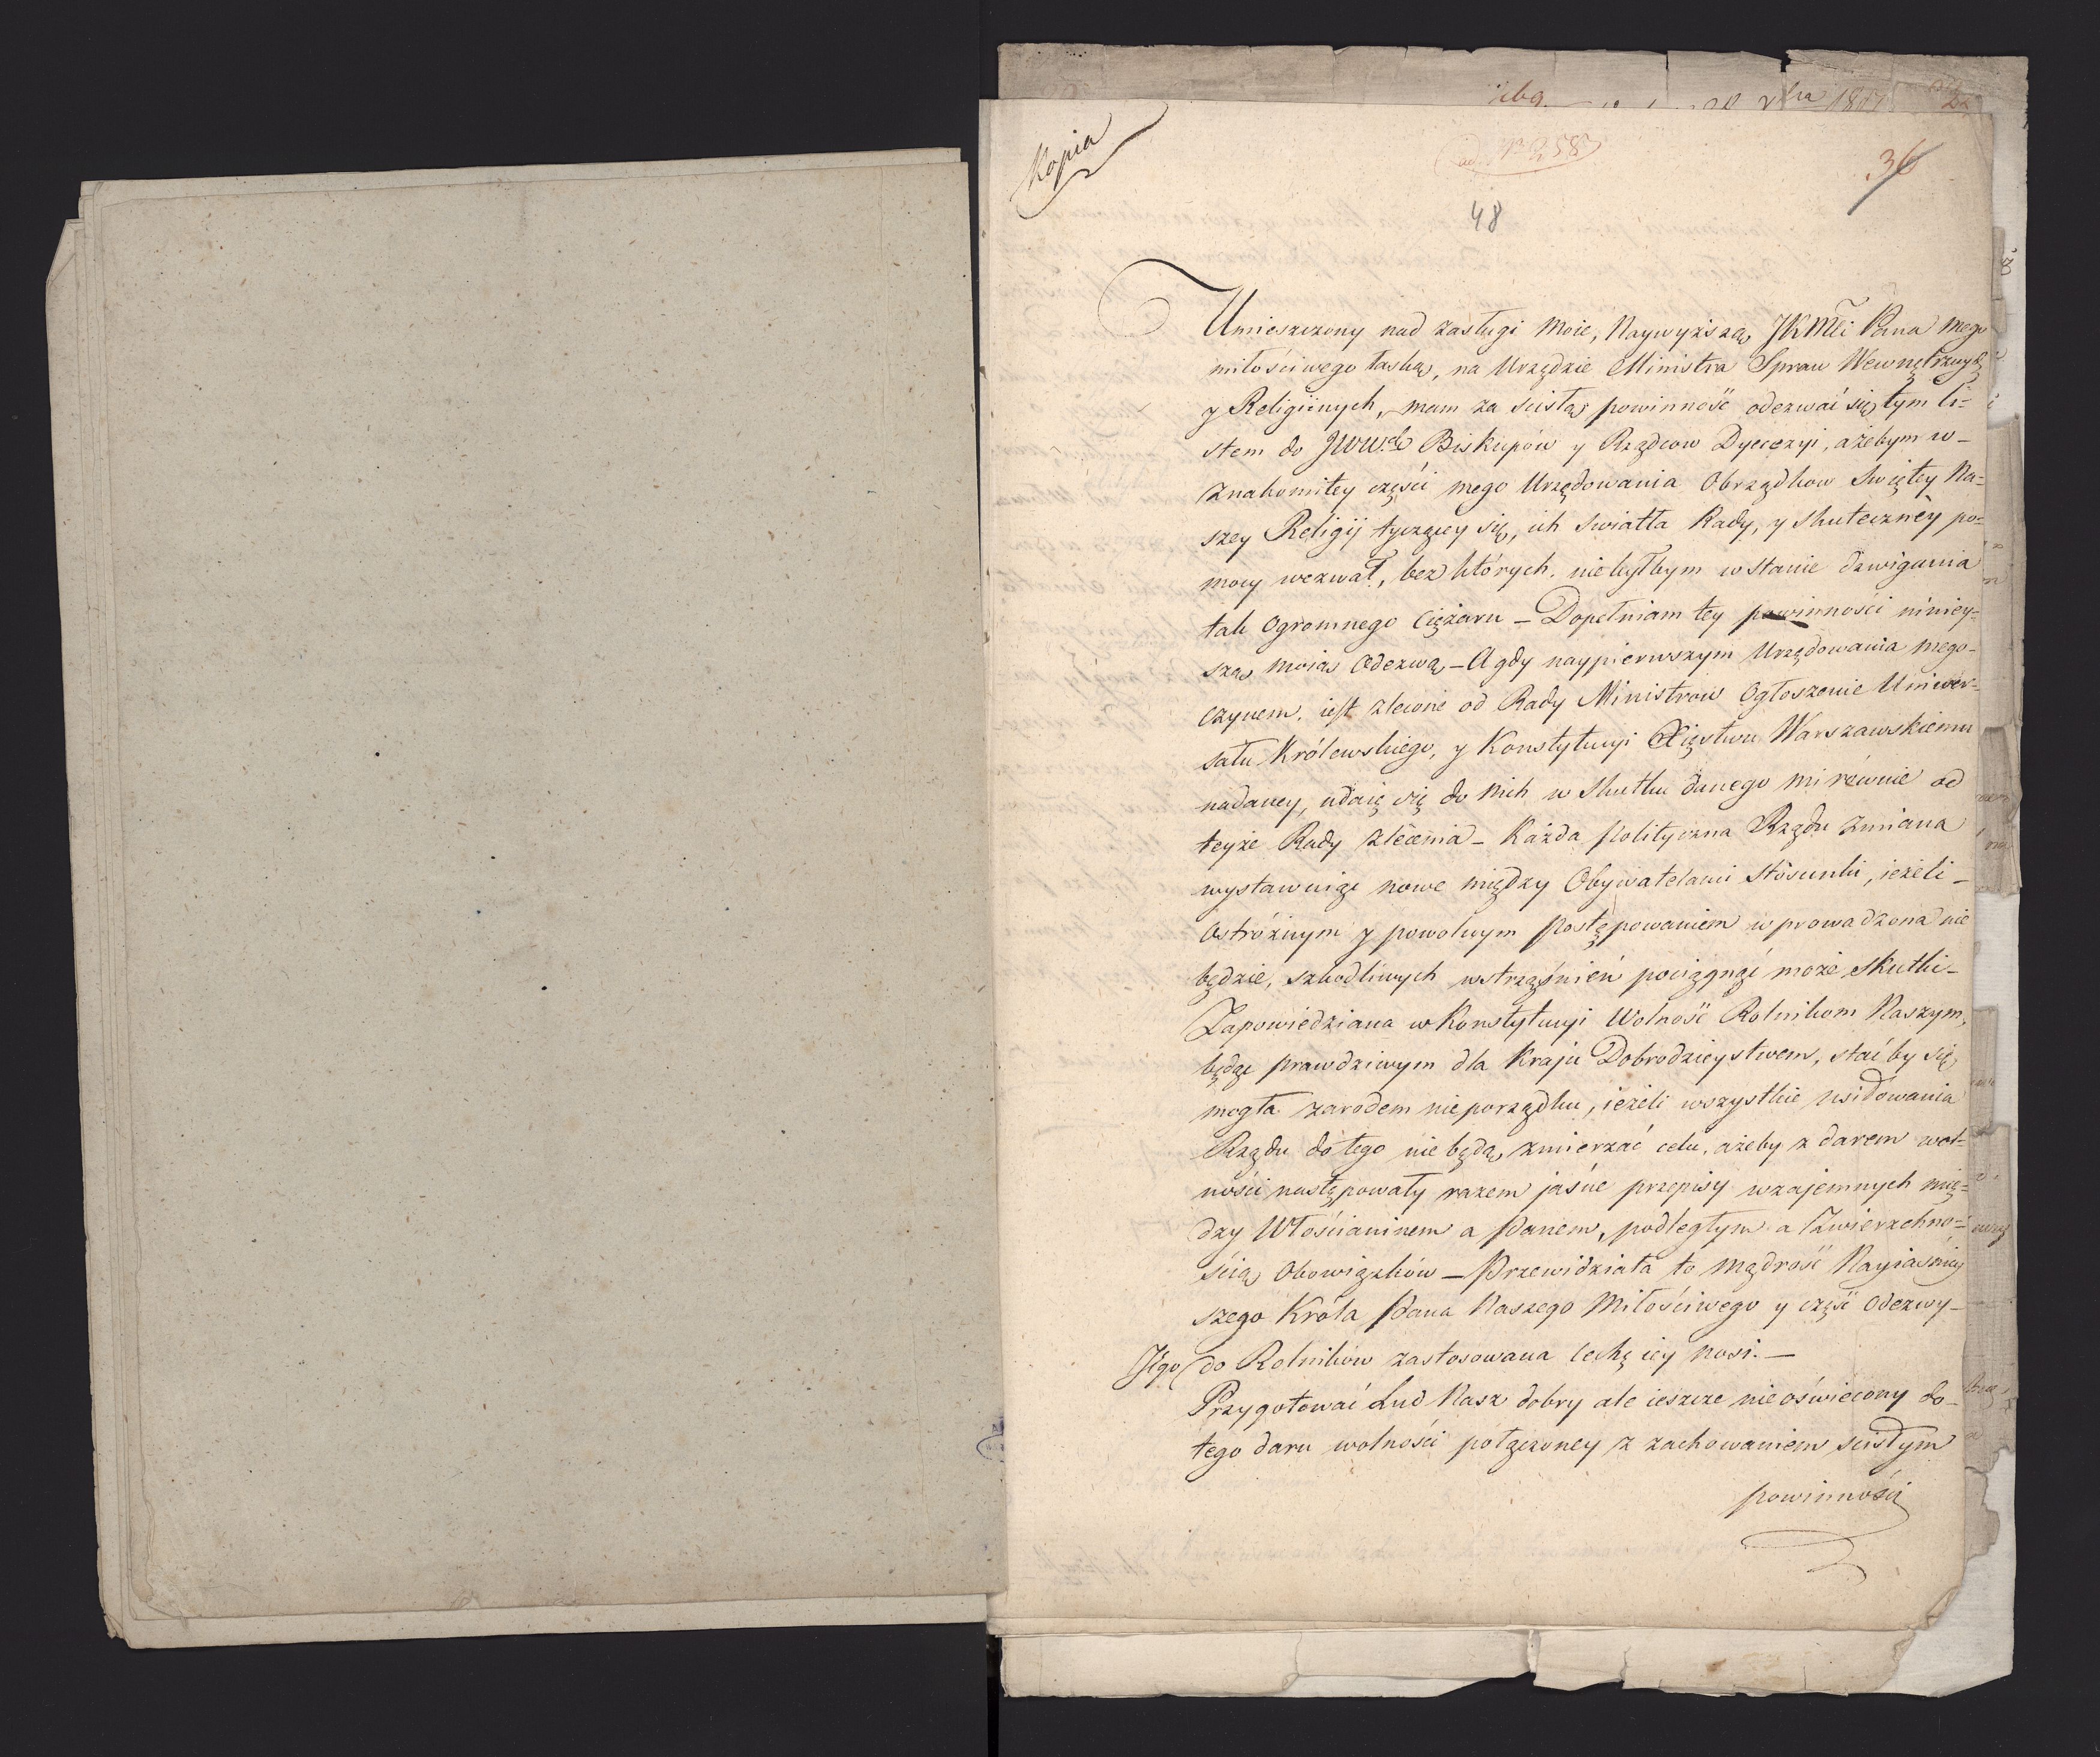 Kopia
ad Nro 258
36
48
Umieszczony nad zasługi Moie, Naywyższą JKMci Pana mego
miłościwego łaską, na Urzędzie Ministra Spraw Wewnętrznych
y Religiinych, mam za scisłą powinność odezwać się tym li=
stem do JWW. Biskupów y Rządcow Dyecezyi, ażebym w_
znakomitey części mego Urzędowania Obrządkow Swiętey Na=
szey Religij tyczącey się, ich Swiatła Rady, y skuteczney po=
mocy wezwał, bez których. niebyłbym wstanie dzwigania
tak Ogromnego Ciężaru _ Dopełniam tey powinności niniey=
szą moią Odezwą _ A gdy naypierwszym Urzędowania mego_
czynem. iest zlecone od Rady Ministrow Ogłoszenie Uniwer=
sału Królewskiego, y Konstytucyi Xięstwu Warszawskiemu
nadaney, udaię się do Nich w Skutku danego mi rownie od
teyże Rady zlecenia _ Każda Polityczna Rządu zmiana
wystawuiąc nowe między Obywatelami Stosunki, ieżeli _
Ostróżnym y powolnym Postępowaniem wprowadzona nie
będzie, szkodliwych wstrząśnień pociągnąć może skutki _
Zapowiedziana w Konstytucyi Wolność Rolnikom Naszym,
będąc prawdziwym dla Kraju Dobrodzieystwem, stać by się
mogła zarodem nieporządku, ieżeli wszystkie usiłowania
Rządu do tego nie będą zmierzać celu, ażeby z darem wol=
ności następowały razem jaśne przepisy wzajemnych mię=
dzy Włościaninem a Panem, podległym a Zwierzchno=
ścią Obowiązków _ Przewidziała to Mądrość Nayiaśniey
szego Króla Pana Naszego Miłościwego y część Odezwy _
Jego do Rolników zastosowana Cechę iey nosi. _
Przygotować Lud Nasz dobry ale ieszcze nieoświecony do_
tego daru wolności połączoney z zachowaniem scisłym
powinności